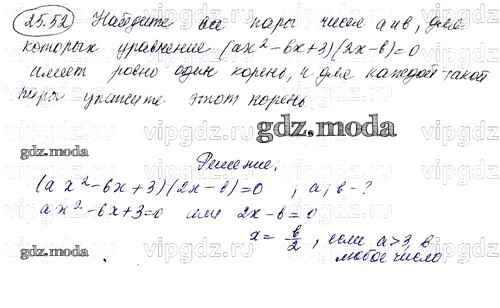 25.52 Найдите все пары чисел a и в, для
которых уравнение (ax²-6x+3)(2x-в)=0
имеет ровно один корень, и для каждой такой
пары укажите этот корень
gdz.moda
gdz.moda
Решение.
(ax²-6x+3)(2x-в)=0, a; в-?
ax²-6x+3=0 или 2x-в=0
x = в/2, если a>3, в
любое число
gdz.moda
vipgdz.com